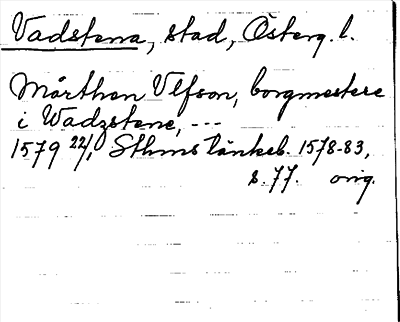 Vadstena, stad, Österg. l.
Mårthen Vlfson, borgmestere
i Wadzstene, ---
1579 22/1 Sthms tänkeb. 1578-83,
s. 77. orig.